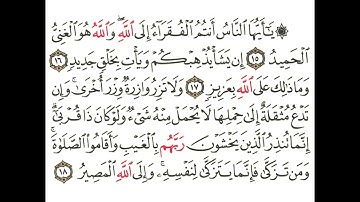 ۞ يَٰٓأَيُّهَا ٱلنَّاسُ أَنتُمُ ٱلْفُقَرَآءُ إِلَى ٱللَّهِ ۖ وَٱللَّهُ هُوَ ٱلْغَنِىُّ
ٱلْحَمِيدُ ١٥ إِن يَشَأْ يُذْهِبْكُمْ وَيَأْتِ بِخَلْقٍ جَدِيدٍ ١٦
وَمَا ذَٰلِكَ عَلَى ٱللَّهِ بِعَزِيزٍ ١٧ وَلَا تَزِرُ وَازِرَةٌ وِزْرَ أُخْرَىٰ ۚ وَإِن
تَدْعُ مُثْقَلَةٌ إِلَىٰ حِمْلِهَا لَا يُحْمَلْ مِنْهُ شَىْءٌ وَلَوْ كَانَ ذَا قُرْبَىٰٓ ۗ
إِنَّمَا تُنذِرُ ٱلَّذِينَ يَخْشَوْنَ رَبَّهُم بِٱلْغَيْبِ وَأَقَامُوا۟ ٱلصَّلَوٰةَ ۚ
وَمَن تَزَكَّىٰ فَإِنَّمَا يَتَزَكَّىٰ لِنَفْسِهِۦ ۚ وَإِلَى ٱللَّهِ ٱلْمَصِيرُ ١٨